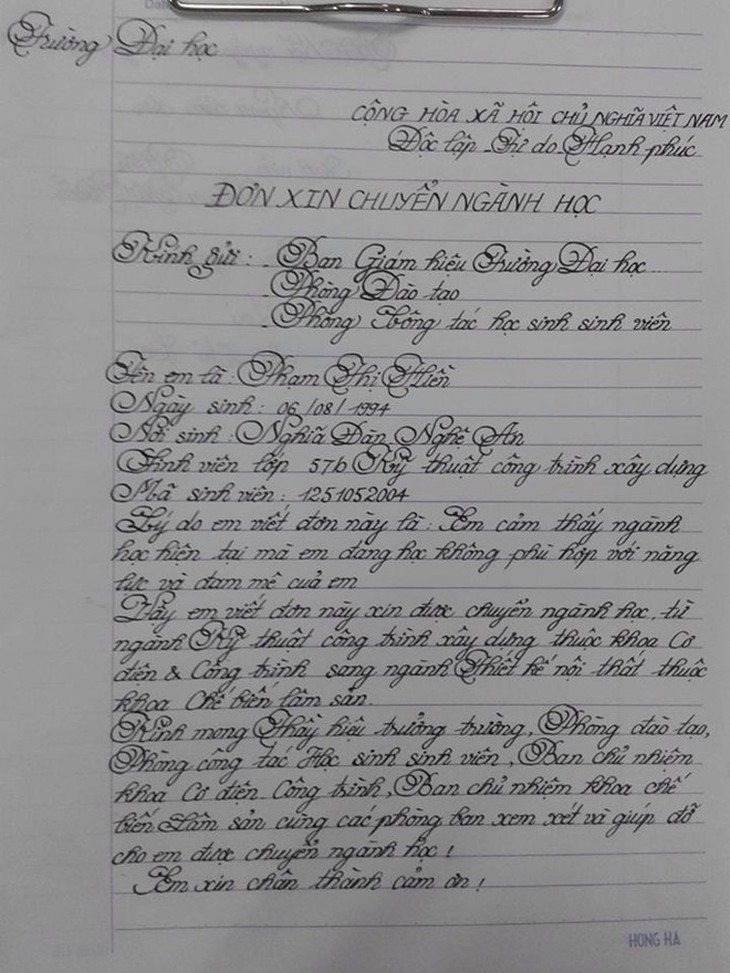 Trường Đại học
CỘNG HÒA XÃ HỘI CHỦ NGHĨA VIỆT NAM
Độc lập - Tự do - Hạnh phúc
ĐƠN XIN CHUYỂN NGÀNH HỌC
Kính gửi : - Ban Giám hiệu Trường Đại học ...
- Phòng Đào tạo
- Phòng Công tác học sinh sinh viên
Tên em là : Phạm Thị Hiền
Ngày sinh : 06/08/1994
Nơi sinh : Nghĩa Đàn - Nghệ An
Sinh viên lớp 57b Kỹ thuật công trình xây dựng
Mã sinh viên : 1251052004
Lý do em viết đơn này là : Em cảm thấy ngành
học hiện tại mà em đang học không phù hợp với năng
lực và đam mê của em
Vậy em viết đơn này xin được chuyển ngành học, từ
ngành Kỹ thuật công trình xây dựng thuộc khoa Cơ
điện & Công trình sang ngành Thiết kế nội thất thuộc
khoa Chế biến lâm sản.
Kính mong Thầy hiệu trưởng trường, Phòng đào tạo,
Phòng công tác Học sinh sinh viên, Ban chủ nhiệm
khoa Cơ điện - Công trình, Ban chủ nhiệm khoa chế
biến Lâm sản cùng các phòng ban xem xét và giúp đỡ
cho em được chuyển ngành học !
Em xin chân thành cảm ơn !
HONG HA